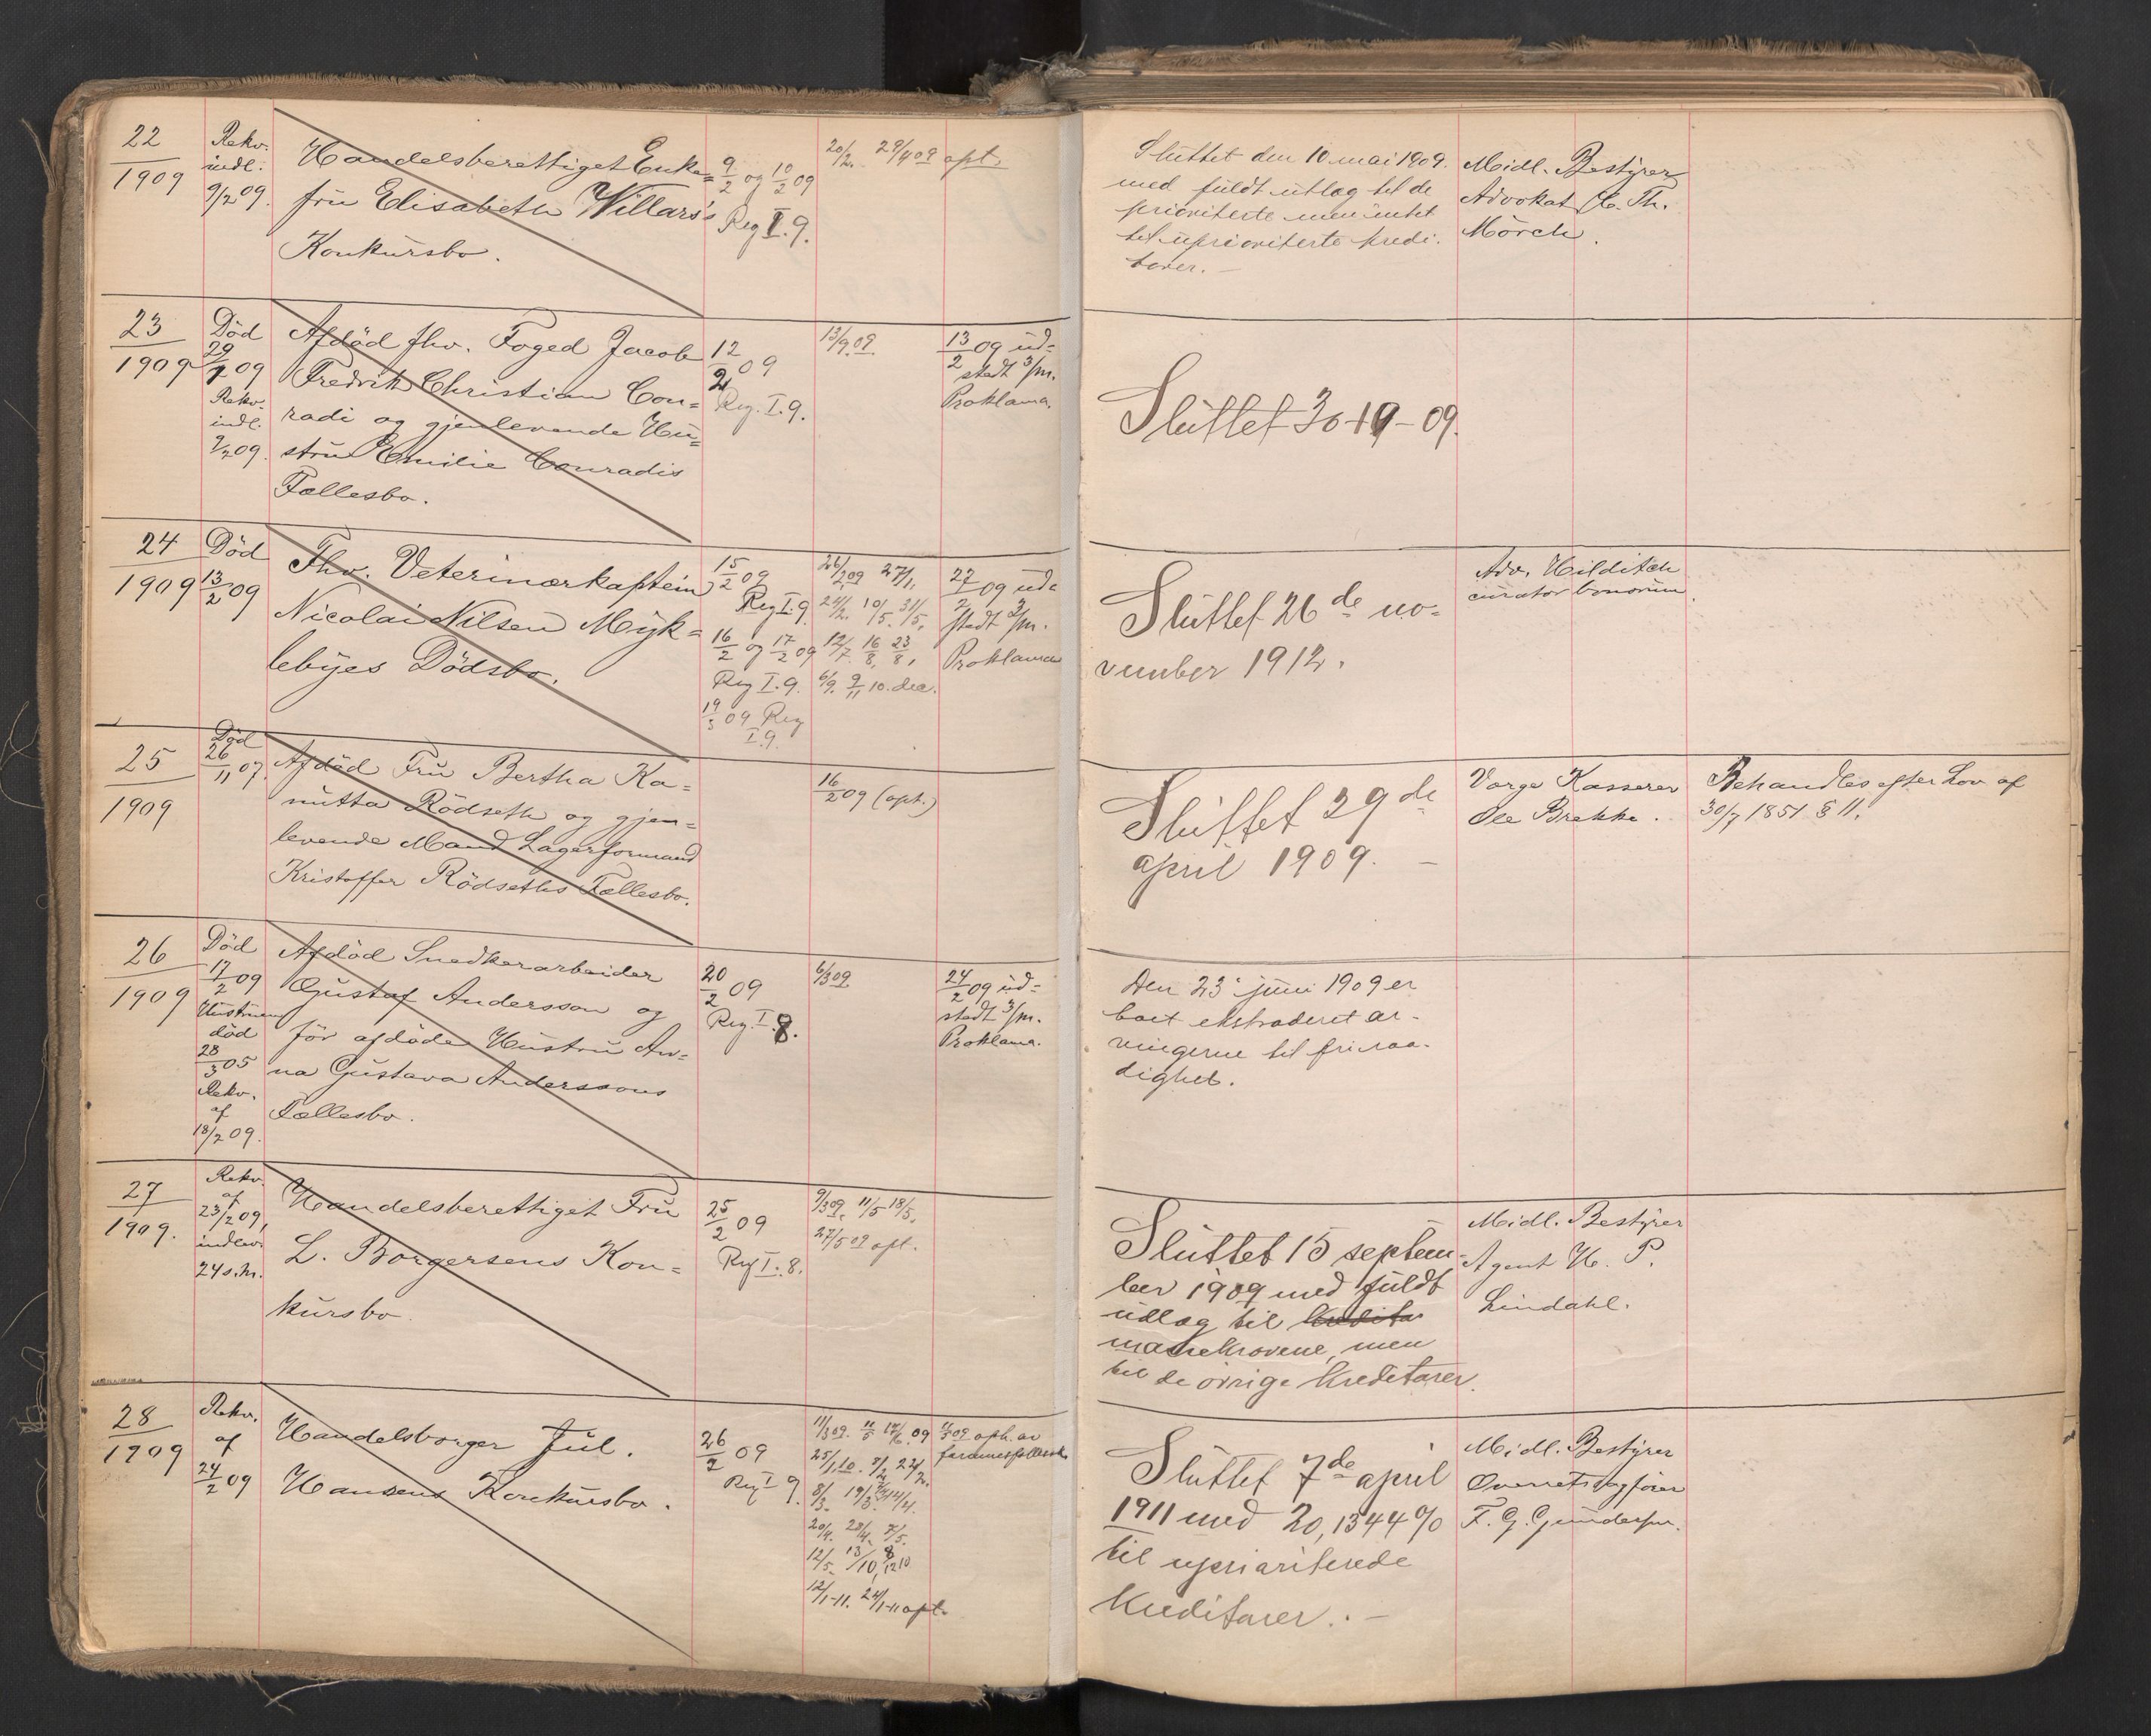 22
1909
Rekv.
indl.
9/2 09.
Handelsberettiget Enke=
fru Elisabeth Willars's
Konkursbo.
9/2 og 10/2 09
Reg I. 9.
20/2. 29/4 09 opt.
Sluttet den 10 mai 1909.
med fuldt utlæg til de
prioriterte men intet
til uprioriterte kredi-
torer. —
Midl. Bestyrer
Advokat C. Th.
Mörch.
23
1909
Död
29/1 09
Rekv.
indl.
9/2 09.
Afdöd fhv. Foged Jacob
Fredrik Christian Con=
radi og gjenlevende Hu=
stru Emilie Conradis
Fællesbo.
12/2 09
Reg. I. 9.
13/9 09.
13/2 09 ud=
stedt 3/m.
Proklama.
Sluttet 30-10-09.
24
1909
Död
13/2 09
Fhv. Veterinærkaptein
Nicolai Nilsen Myk=
lebyes Dödsbo.
15/2 09
Reg I. 9.
16/2 og 17/2 09
Reg I. 9.
19/3 09 Reg
I. 9.
26/2 09 27/1,
24/2. 10/5. 31/5,
12/7. 16/8, 23/8,
6/9. 9/11 10. dec.
27/2 09 ud=
stedt 3/m.
Proklama
Sluttet 26de no=
vember 1912.
Adv. Hilditch
curator bonorum.
25
1909
Död
26/11 07.
Afdöd Fru Bertha Ka=
nutta Rödseth og gjen=
levende Mand Lagerformand
Kristoffer Rödseths Fællesbo.
16/2 09 (opt.)
Sluttet 29de
april 1909. —
Værge Kasserer
Ole Brekke.
Behandles efter Lov af
30/7 1851 § 11.
26
1909
Död
17/2 09
Hustruen
död
28/3 05
Rekv.
af
18/2 09.
Afdöd Snedkerarbeider
Gustaf Andersson og
för afdöde Hustru An=
na Gustava Anderssons
Fællesbo.
20/2 09
Reg. I. 8.
6/3 09
24/2 09 ud=
stedt 3/m.
Proklama.
Den 23. juni 1909 er
boet ekstraderet ar-
vingerne til friraa-
dighet.
27
1909.
Rekv.
af
23/2 09,
indlev.
24 s. M.
Handelsberettiget Fru
L. Borgersens Kon=
kursbo.
25/2 09
Reg I. 8.
9/3 09. 11/5 18/5.
27/5 09 opt.
Sluttet 15 septem-
ber 1909 med fuldt
udlæg til
massekravene, men
til de övrige kreditorer.
Midl. Bestyrer
Agent H. P.
Lindahl.
28
1909
Rekv.
af
24/2 09
Handelsborger Jul.
Hansens Konkursbo.
26/2 09
Reg I 9.
11/3 09. 11/5 17/6. 09
25/1 10. 8/2 22/2.
8/3. 19/3. 14/4.
20/4. 28/4. 7/5.
12/5. 13/10,
12/1-11. 24/1-11 opt.
11/3 09 oph. av
formuesfællesk.
Sluttet 7de april
1911 med 20,1344 %
til uprioriterede
kreditorer. —
Midl. Bestyrer
Overretssagfører
F. G. Gundersen.